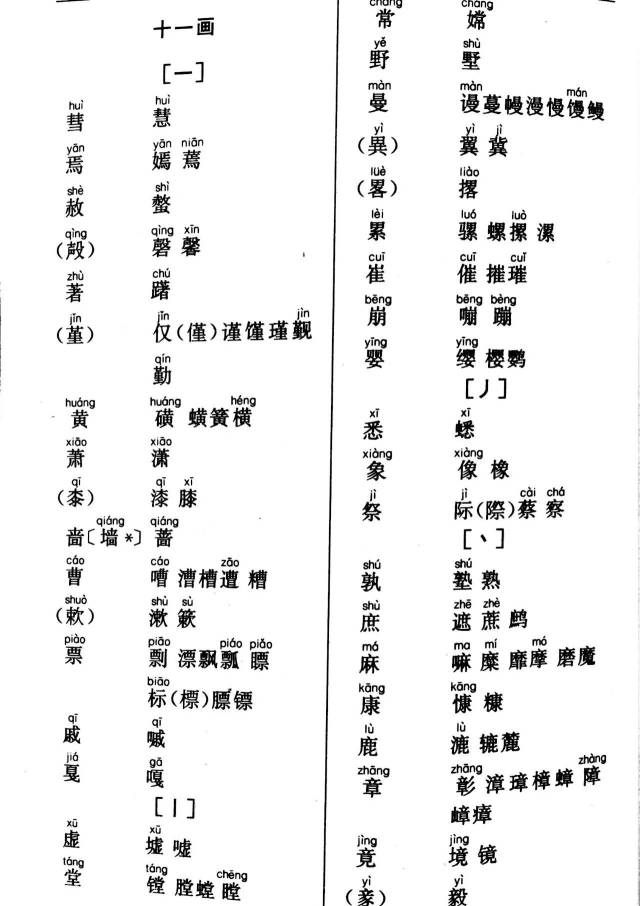 十一画
[一]
huì huì
彗 慧
yān yān niān
焉 嫣 蔫
shè shì
赦 螫
qìng qìng xīn
(殸) 磬 馨
zhù chú
著 躇
jǐn jǐn jìn
(堇) 仅(僅)谨馑瑾觐
qín
勤
huáng huáng héng
黄 磺 蟥簧横
xiāo xiāo
萧 潇
qī qī xī
(桼) 漆 膝
qiáng qiáng
啬〔墙*〕蔷
cáo cáo zāo
曹 嘈 漕槽遭 糟
shuò shù sù
(欶) 漱 簌
piào piāo piáo piǎo
票 剽 漂飘瓢 瞟
biāo
标(標)膘镖
qī qī
戚 嘁
jiá gā
戛 嘎
[丨]
xū xū
虚 墟 嘘
táng táng chēng
堂 镗 膛螳 瞠
cháng cháng
常 嫦
yě shù
野 墅
màn màn mán
曼 谩蔓幔漫慢馒鳗
yì yì jì
(異) 翼 冀
lüè liào
(畧) 撂
lèi luó luò
累 骡 螺摞 漯
cuī cuī cuǐ
崔 催 摧璀
bēng bēng bèng
崩 嘣 蹦
yīng yīng
婴 缨 樱鹦
[丿]
xī xī
悉 蟋
xiàng xiàng
象 像 橡
jì jì cài chá
祭 际(際)蔡 察
[丶]
shú shú
孰 塾 熟
shù zhē zhè
庶 遮 蔗 鹧
má ma mí mó
麻 嘛 糜 靡摩 磨魔
kāng kāng
康 慷 糠
lù lù
鹿 漉 辘麓
zhāng zhāng zhàng
章 彰 漳璋樟蟑 障
嶂瘴
jìng jìng
竟 境 镜
yì yì
(豙) 毅